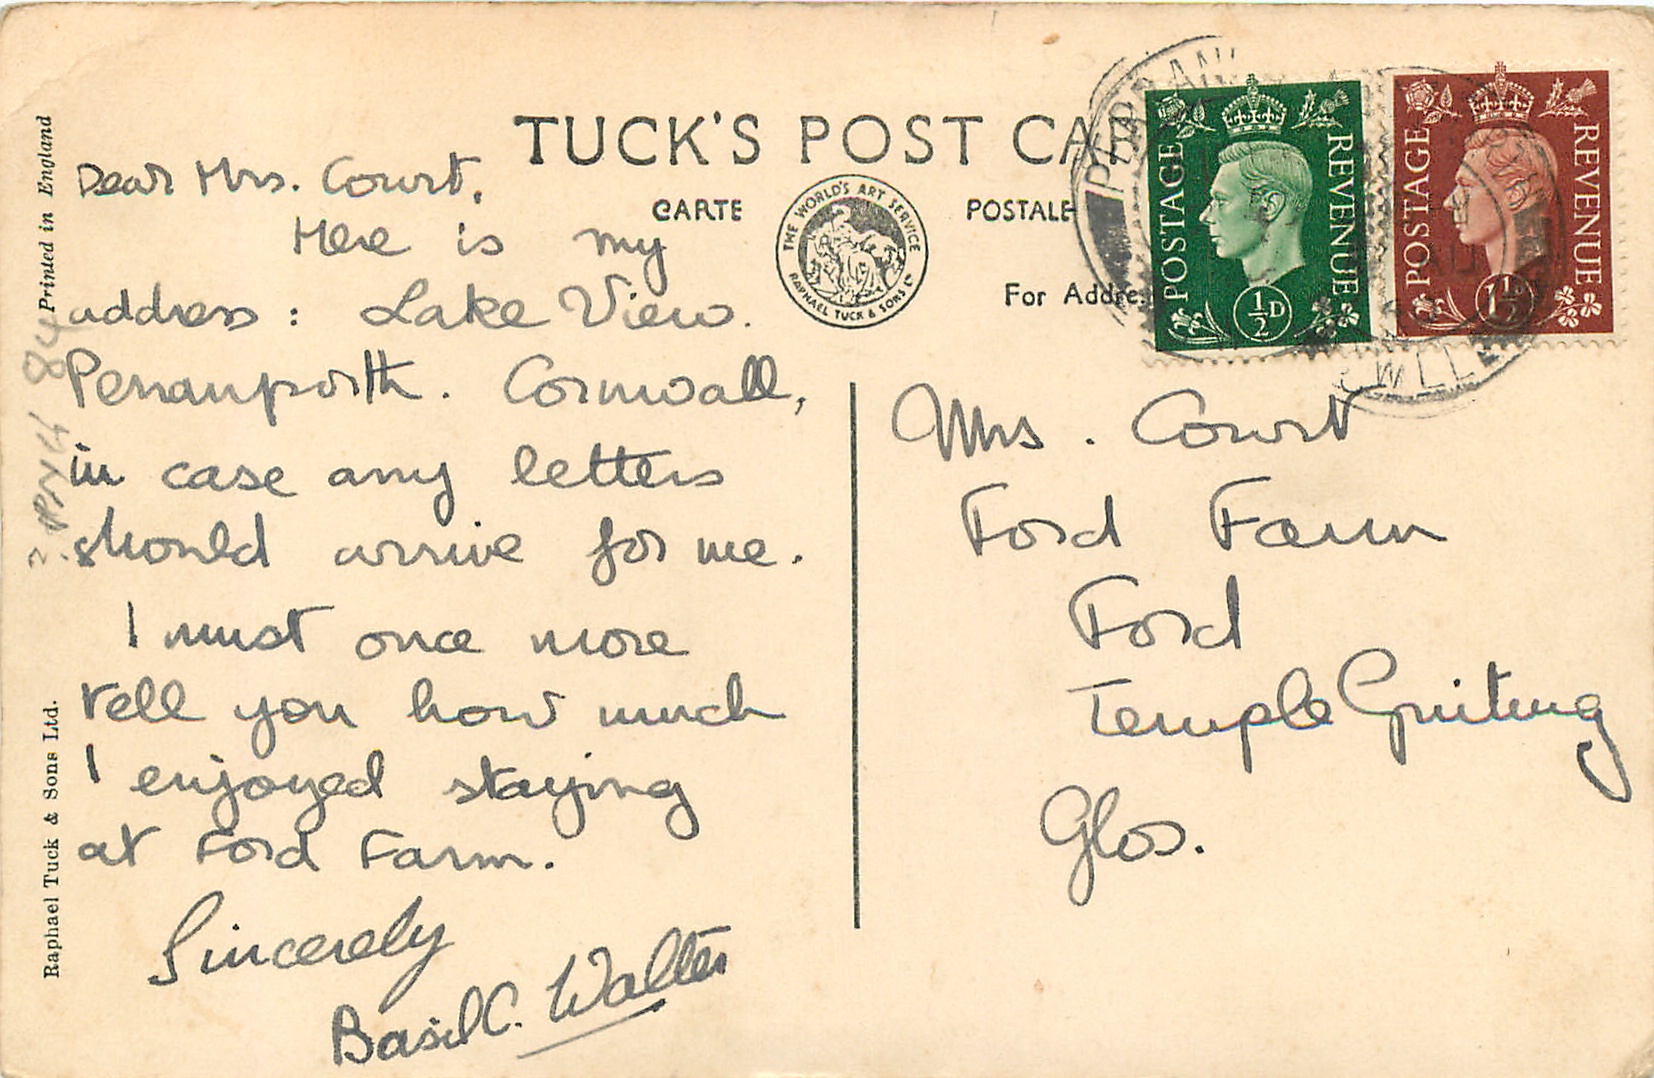 TUCK'S POST CA
CARTE POSTALE
For Addre
THE WORLD'S ART SERVICE
RAPHAEL TUCK & SONS LD
Printed in England
Raphael Tuck & Sons Ltd.
Dear Mrs. Court,
Here is my
address: Lake View.
Perranporth. Cornwall,
in case any letters
should arrive for me.
I must once more
tell you how much
I enjoyed staying
at Ford Farm.
Sincerely
Basil C. Walter
POSTAGE REVENUE
½D
POSTAGE REVENUE
1½
Mrs. Court
Ford Farm
Ford
Temple Guiting
Glos.